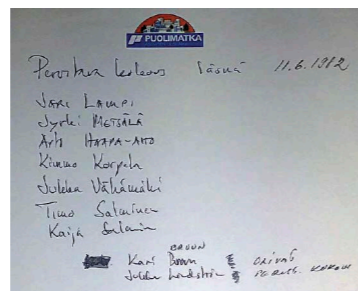 PUOLIMATKA
Perustava kokous Läsnä 11.6.1982
JARI LAMPI
Jyrki METSÄLÄ
Arto HAAPA-AHO
Kimmo Korpela
Jukka Vähämäki
Timo Salminen
Kaija Salmin
BRUUN
Kari
Jukka Lindström PERUST. KOKOUS